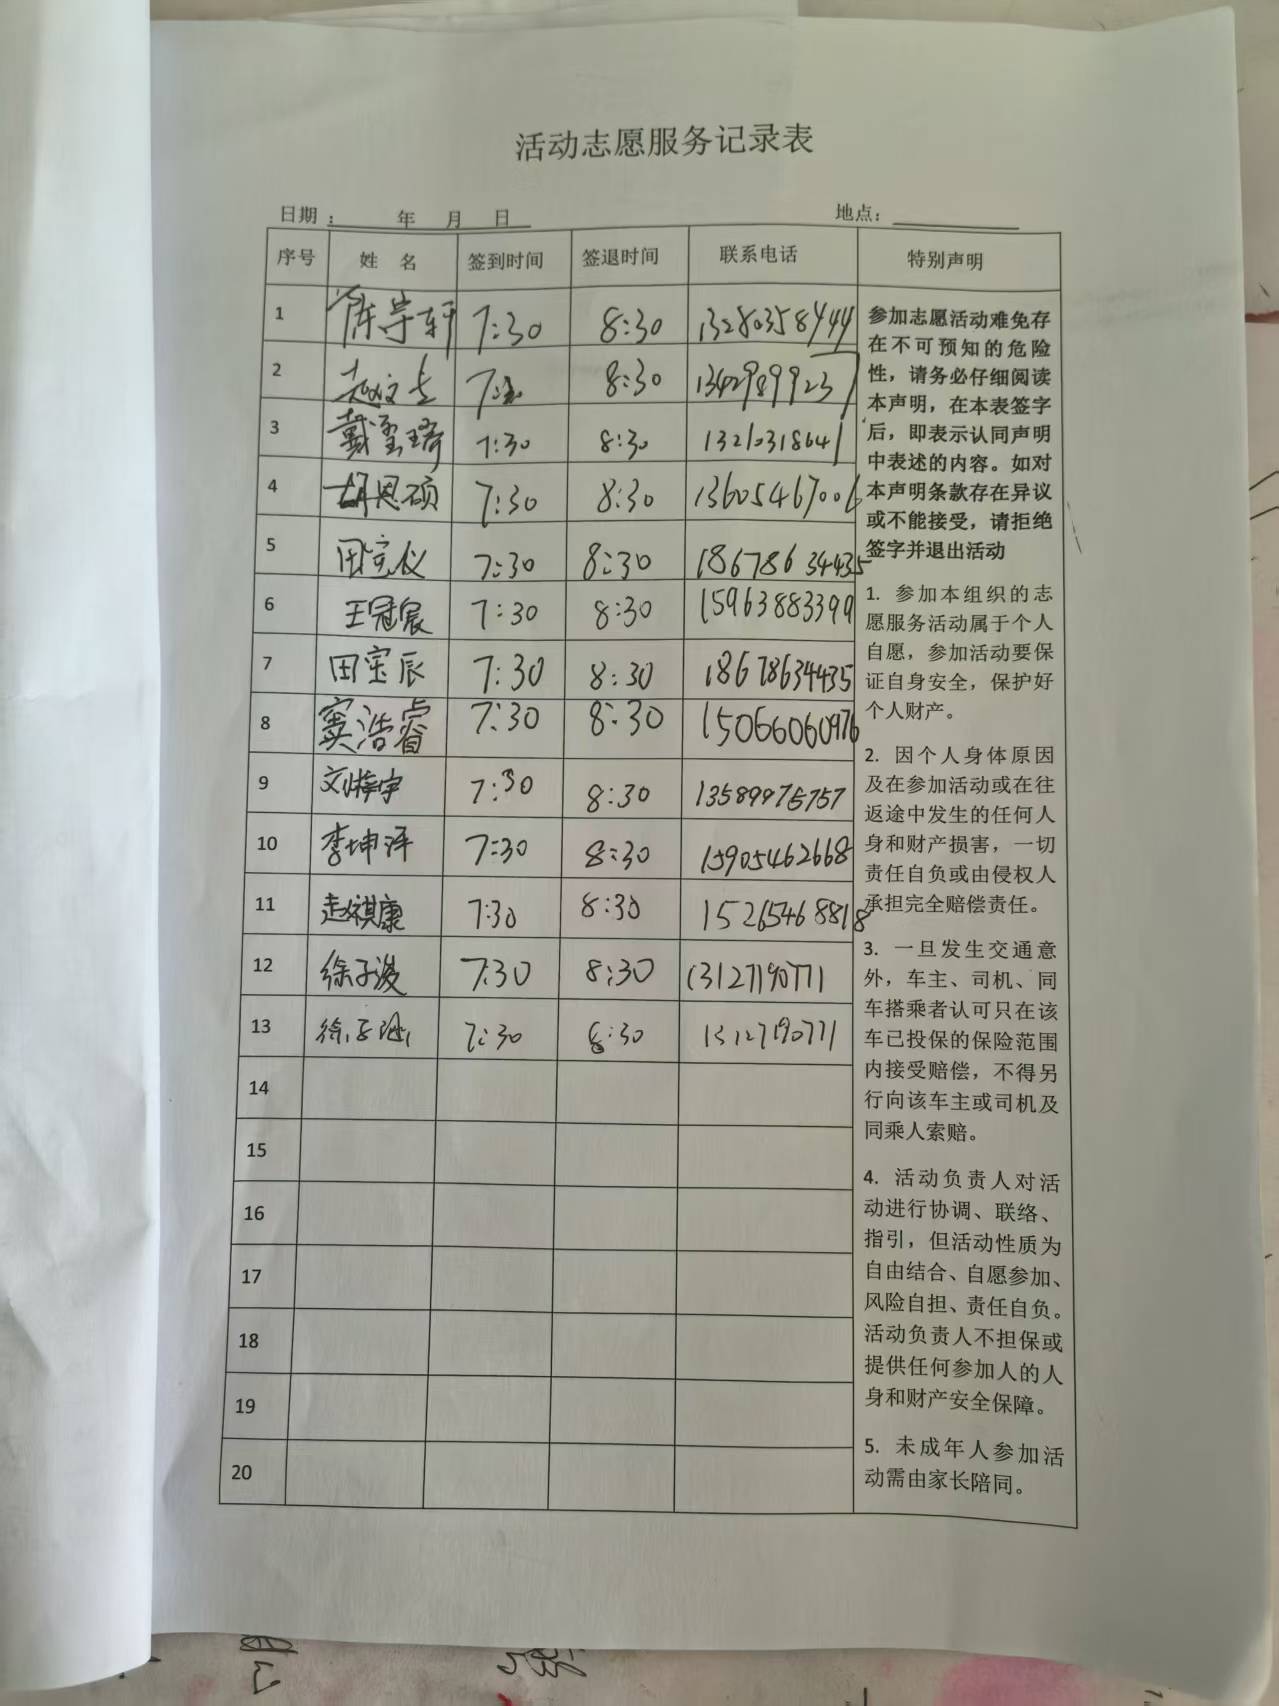 活动志愿服务记录表
日期：　　年　月　日　　地点：
序号 姓 名 签到时间 签退时间 联系电话 特别声明
1 陈 轩 7:30 8:30 13280358444
2 赵文 7: 8:30 13429899237
3 戴 琦 7:30 8:30 13210318641
4 胡恩硕 7:30 8:30 13605467006
5 田宝仪 7:30 8:30 18678634435
6 王冠宸 7:30 8:30 15963883399
7 田宝辰 7:30 8:30 18678634435
8 窦浩睿 7:30 8:30 15066060976
9 刘梓宇 7:30 8:30 13589975757
10 李坤泽 7:30 8:30 15905462668
11 赵祺康 7:30 8:30 15265468818
12 徐子浚 7:30 8:30 13127190771
13 徐子 7:30 8:30 13127190771
14
15
16
17
18
19
20
参加志愿活动难免存
在不可预知的危险
性，请务必仔细阅读
本声明，在本表签字
后，即表示认同声明
中表述的内容。如对
本声明条款存在异议
或不能接受，请拒绝
签字并退出活动
1. 参加本组织的志
愿服务活动属于个人
自愿，参加活动要保
证自身安全，保护好
个人财产。
2. 因个人身体原因
及在参加活动或在往
返途中发生的任何人
身和财产损害，一切
责任自负或由侵权人
承担完全赔偿责任。
3. 一旦发生交通意
外，车主、司机、同
车搭乘者认可只在该
车已投保的保险范围
内接受赔偿，不得另
行向该车主或司机及
同乘人索赔。
4. 活动负责人对活
动进行协调、联络、
指引，但活动性质为
自由结合、自愿参加、
风险自担、责任自负。
活动负责人不担保或
提供任何参加人的人
身和财产安全保障。
5. 未成年人参加活
动需由家长陪同。